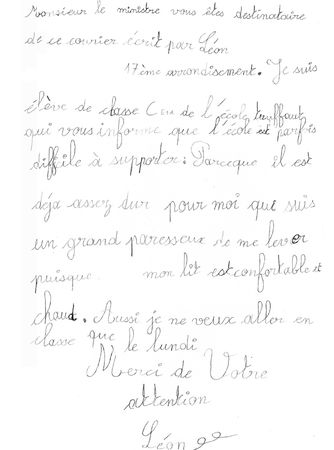 Monsieur le ministre vous êtes destinataire
de ce courrier écrit par Léon
17ème arrondisment. Je suis
élève de classe de l'école truffaut
qui vous informe que l'école est parfois
difficile à supporter: Parceque il est
déja assez dur pour moi que suis
un grand paresseux de me lever
puisque mon lit est confortable et
chaud. Aussi je ne veux aller en
classe que le lundi
Merci de Votre
attention
Léon